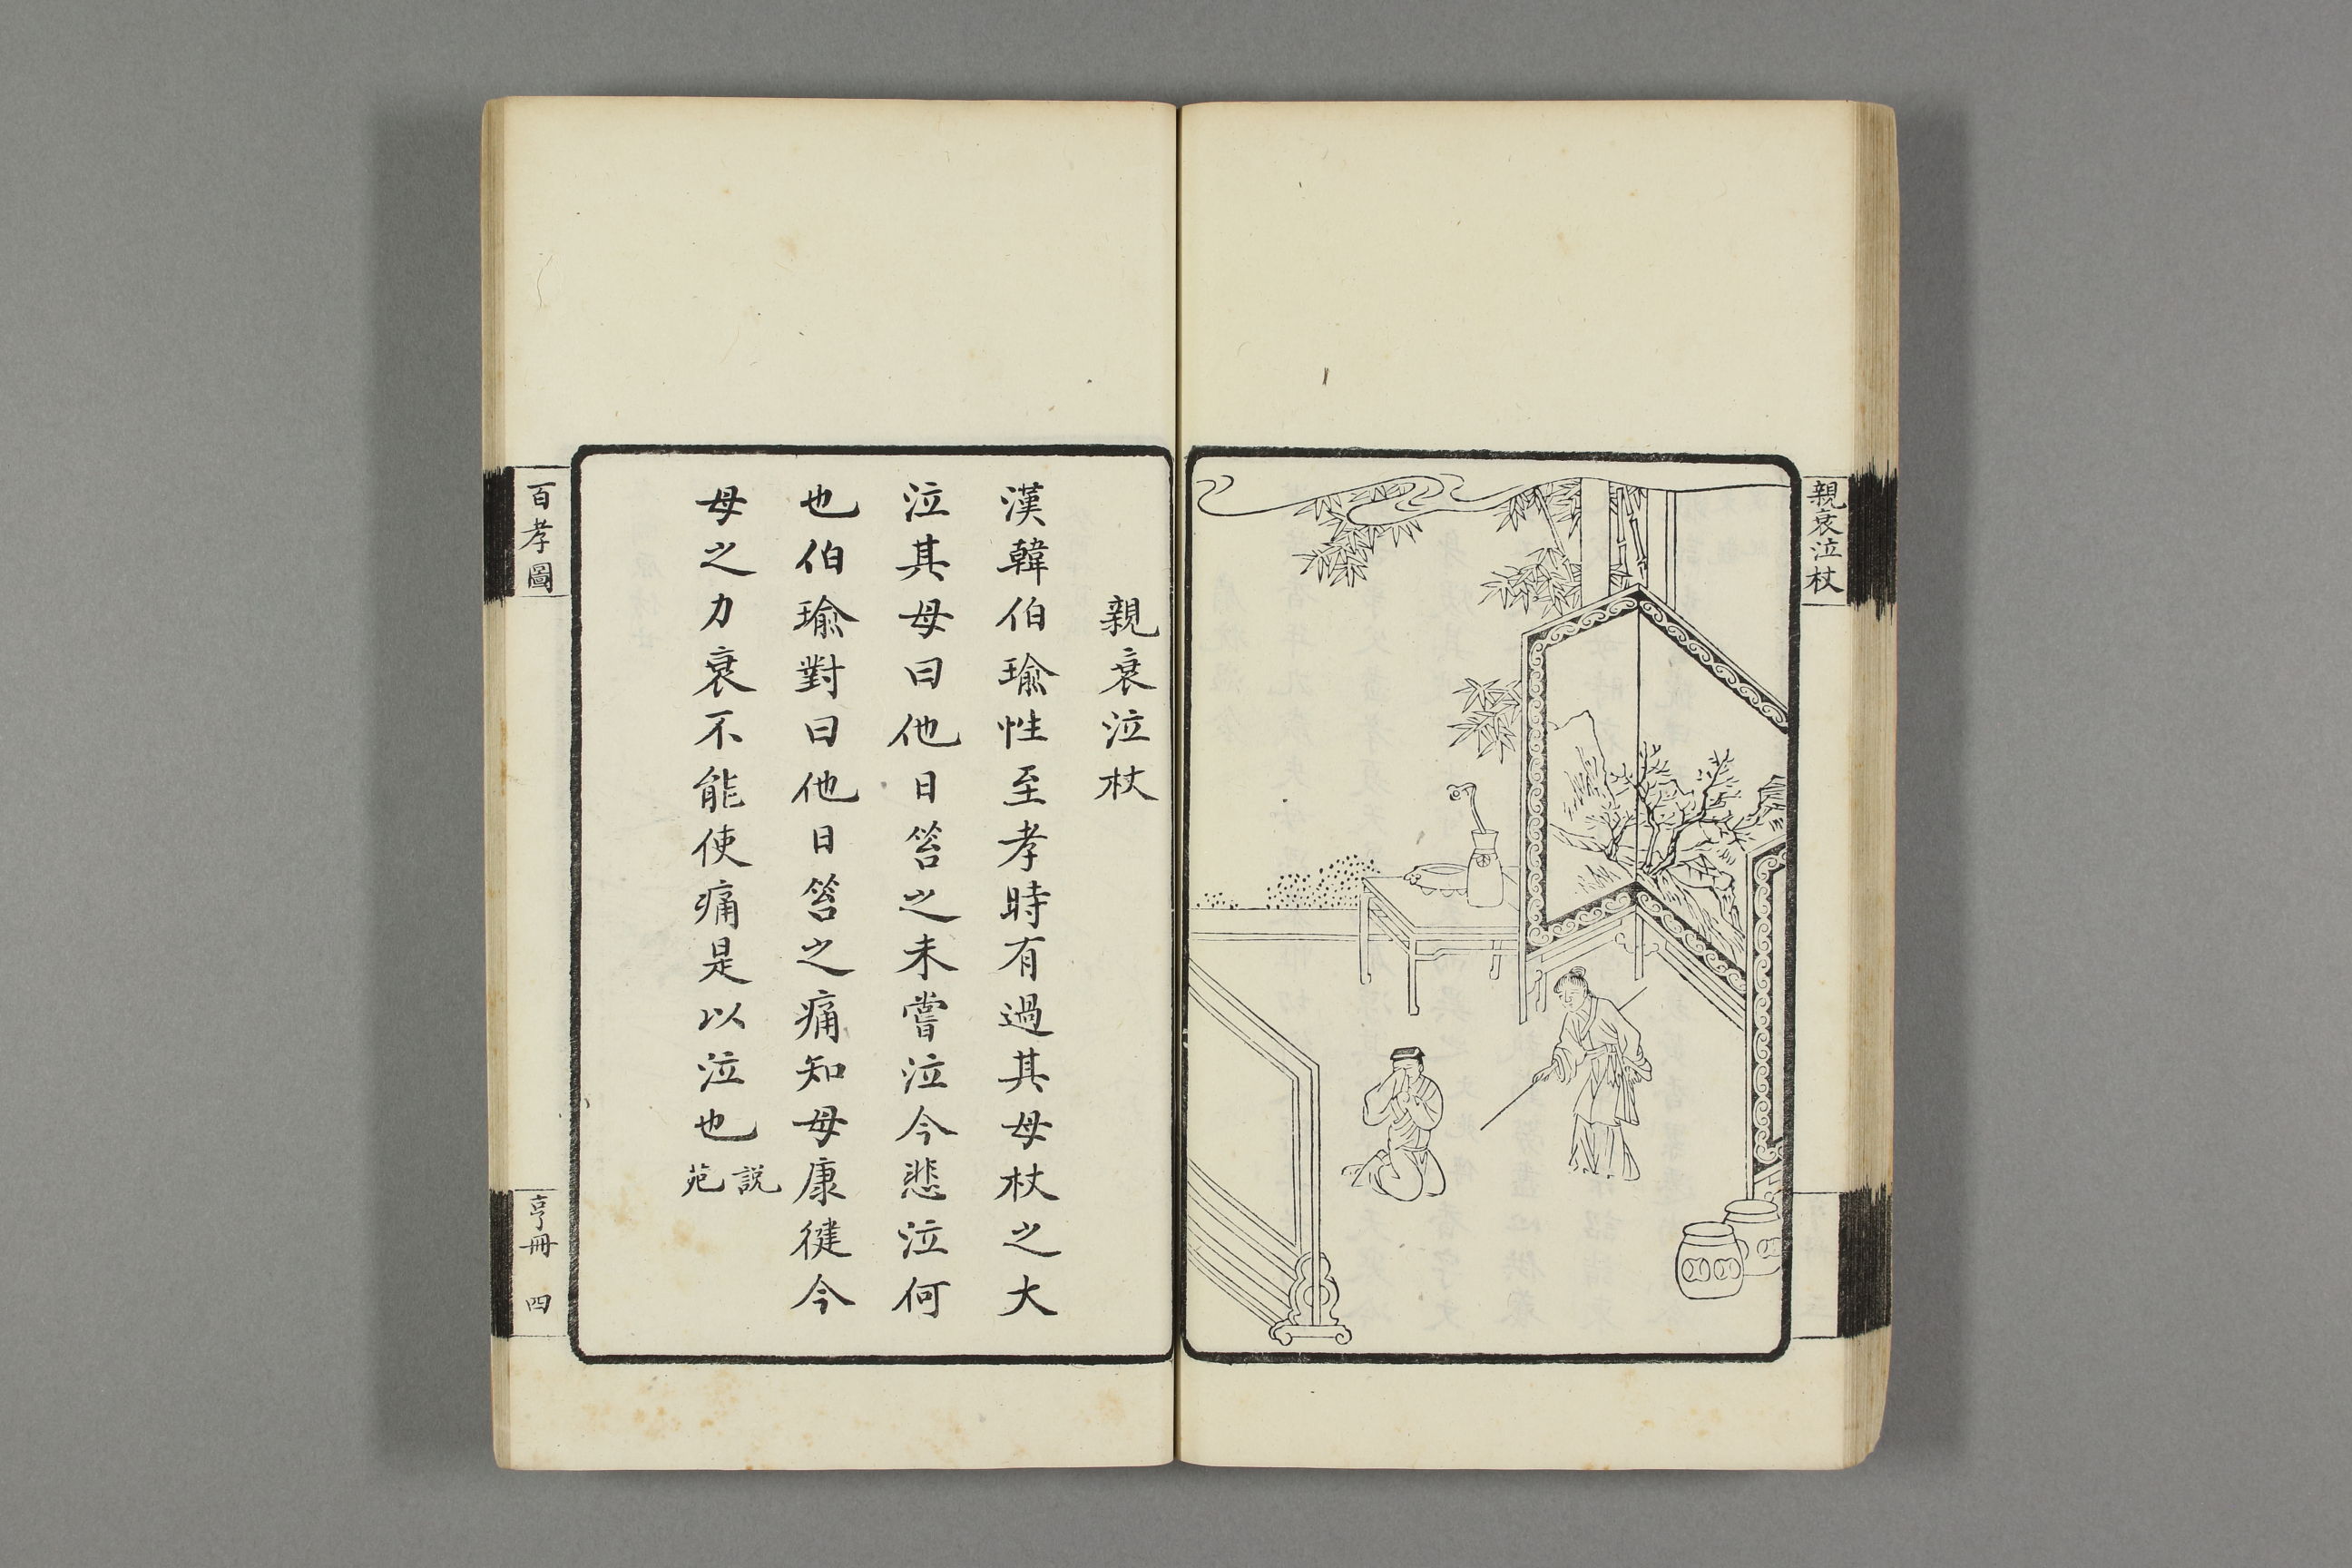 親衰泣杖
親衰泣杖
漢韓伯瑜性至孝時有過其母杖之大
泣其母曰他日笞之未嘗泣今悲泣何
也伯瑜對曰他日笞之痛知母康健今
母之力衰不能使痛是以泣也説
苑
百孝圖
亨冊 四